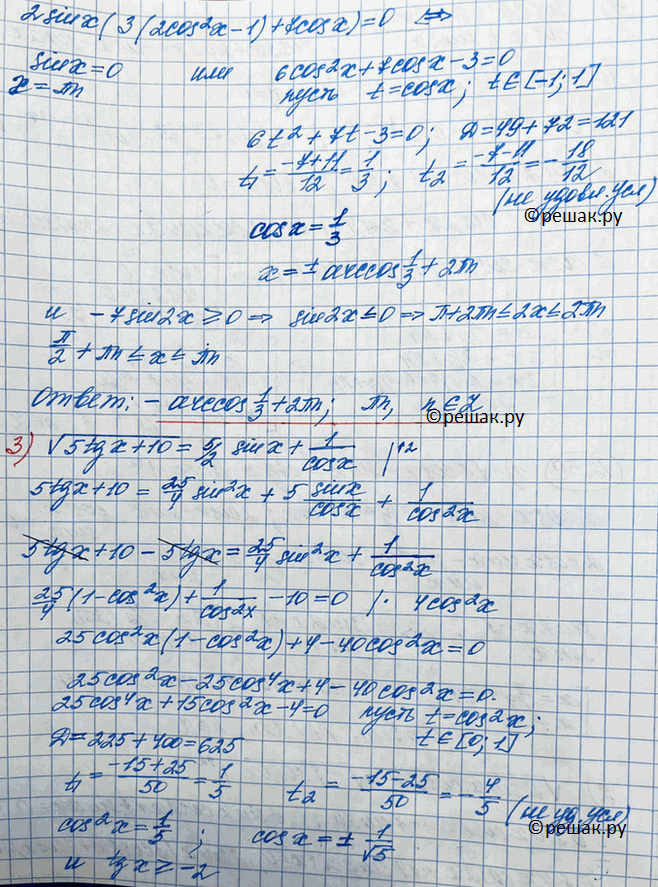 2sinx(3(2cos²x-1)+7cosx)=0 ⇔
sinx=0 или 6cos²x+7cosx-3=0
x=πn пусть t=cosx; t∈[-1;1]
6t²+7t-3=0; D=49+72=121
t₁=(-7+11)/12=1/3; t₂=(-7-11)/12=-18/12
(не удовл. усл)
©решак.ру
cosx=1/3
x=±arccos 1/3+2πn
и -7sin2x≥0 ⇒ sin2x≤0 ⇒ π+2πn≤2x≤2πn
π/2+πn≤x≤πn
Ответ: -arccos 1/3+2πn; πn, n∈Z
©решак.ру
3) √(5tgx+10)=5/2 sinx+1/cosx |^2
5tgx+10=25/4 sin²x+5 sinx/cosx+1/cos²x
5tgx+10-5tgx=25/4 sin²x+1/cos²x
25/4(1-cos²x)+1/cos²x-10=0 |· 4cos²x
25cos²x(1-cos²x)+4-40cos²x=0
25cos²x-25cos⁴x+4-40cos²x=0.
25cos⁴x+15cos²x-4=0 пусть t=cos²x;
t∈[0;1]
D=225+400=625
t₁=(-15+25)/50=1/5 t₂=(-15-25)/50=-4/5 (не уд. усл)
©решак.ру
cos²x=1/5; cosx=±1/√5
и tgx≥-2